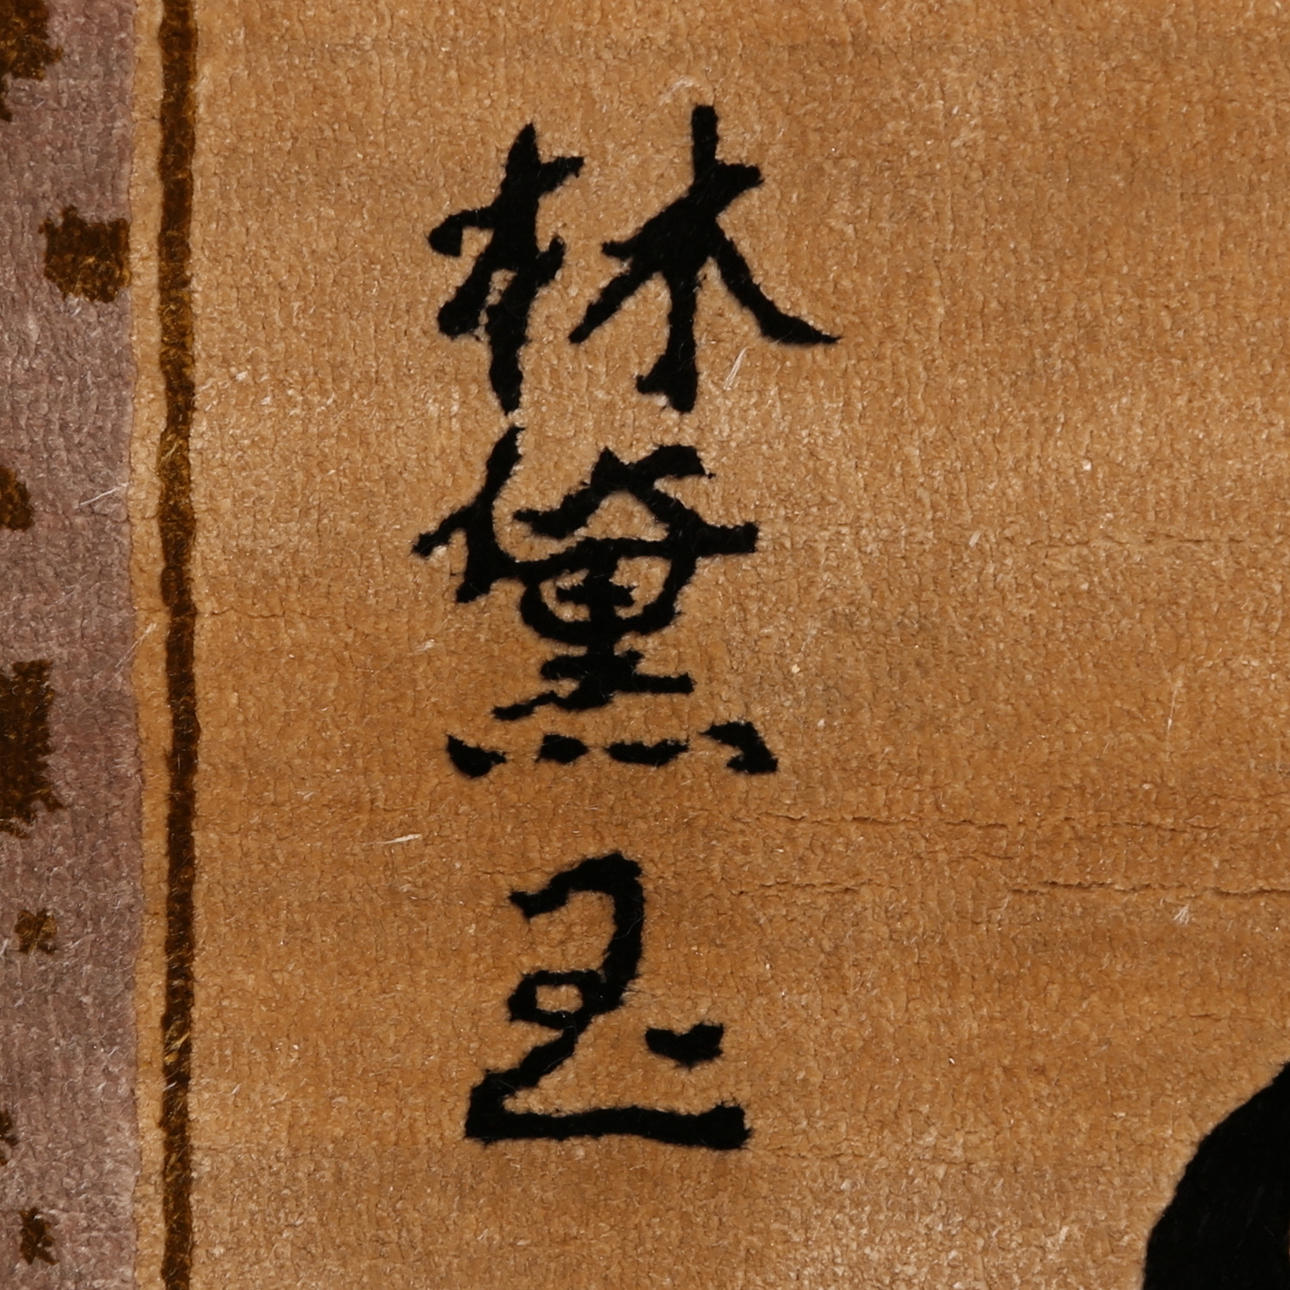 林黛玉